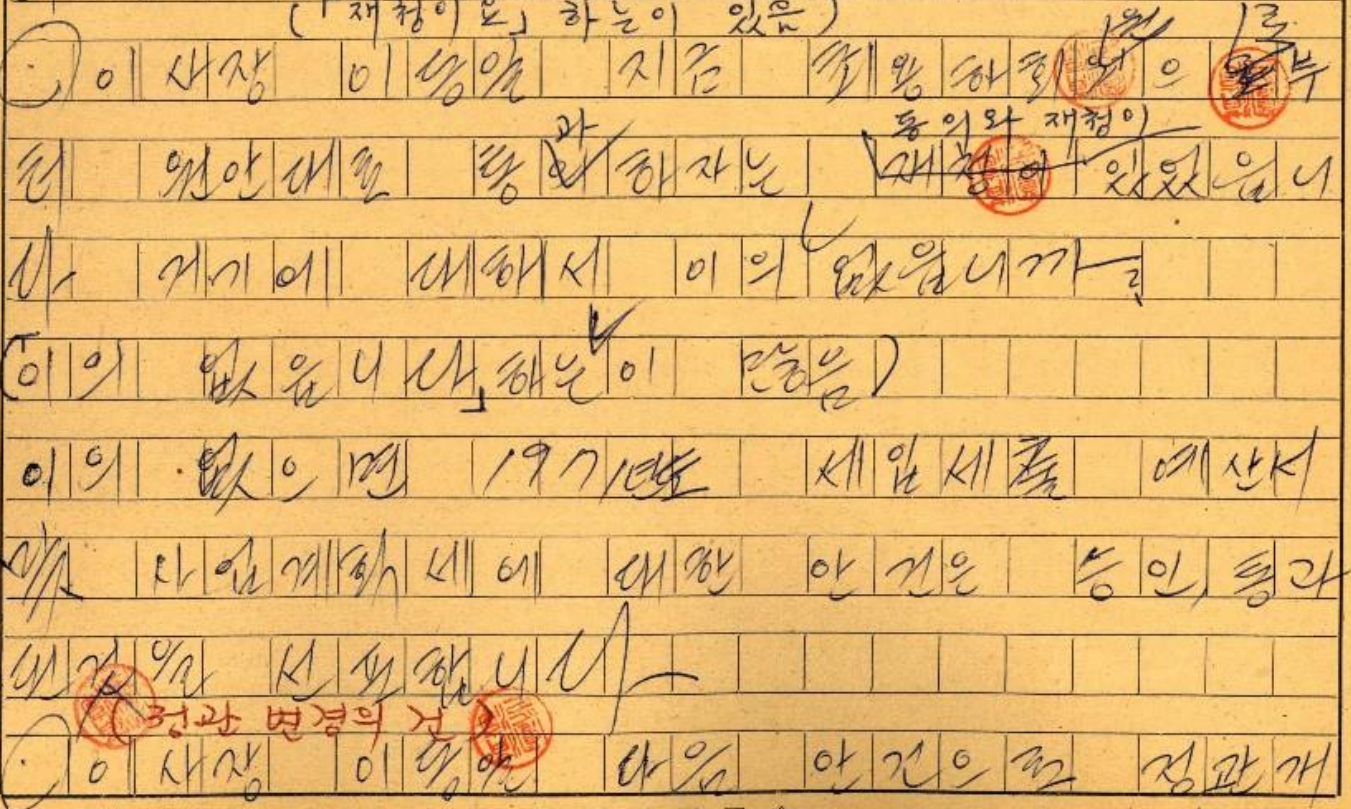 (「재청이요」 하는이 있음)
이사장 이능을 지금 최용하회원으로부
터 원안대로 통과하자는 동의와 재청이 있었읍니
다 거기에 대해서 이의 없읍니까
(이의 없읍니다」하는이 많음)
이의 없으면 1971년도 세입세출 예산서
및 사업계획서에 대한 안건은 승인, 통과
된것을 선포합니다
(정관 변경의 건)
이사장 다음 안건으로 정관개